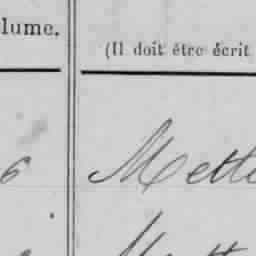 lume.
(Il doit être écrit
6 Mette